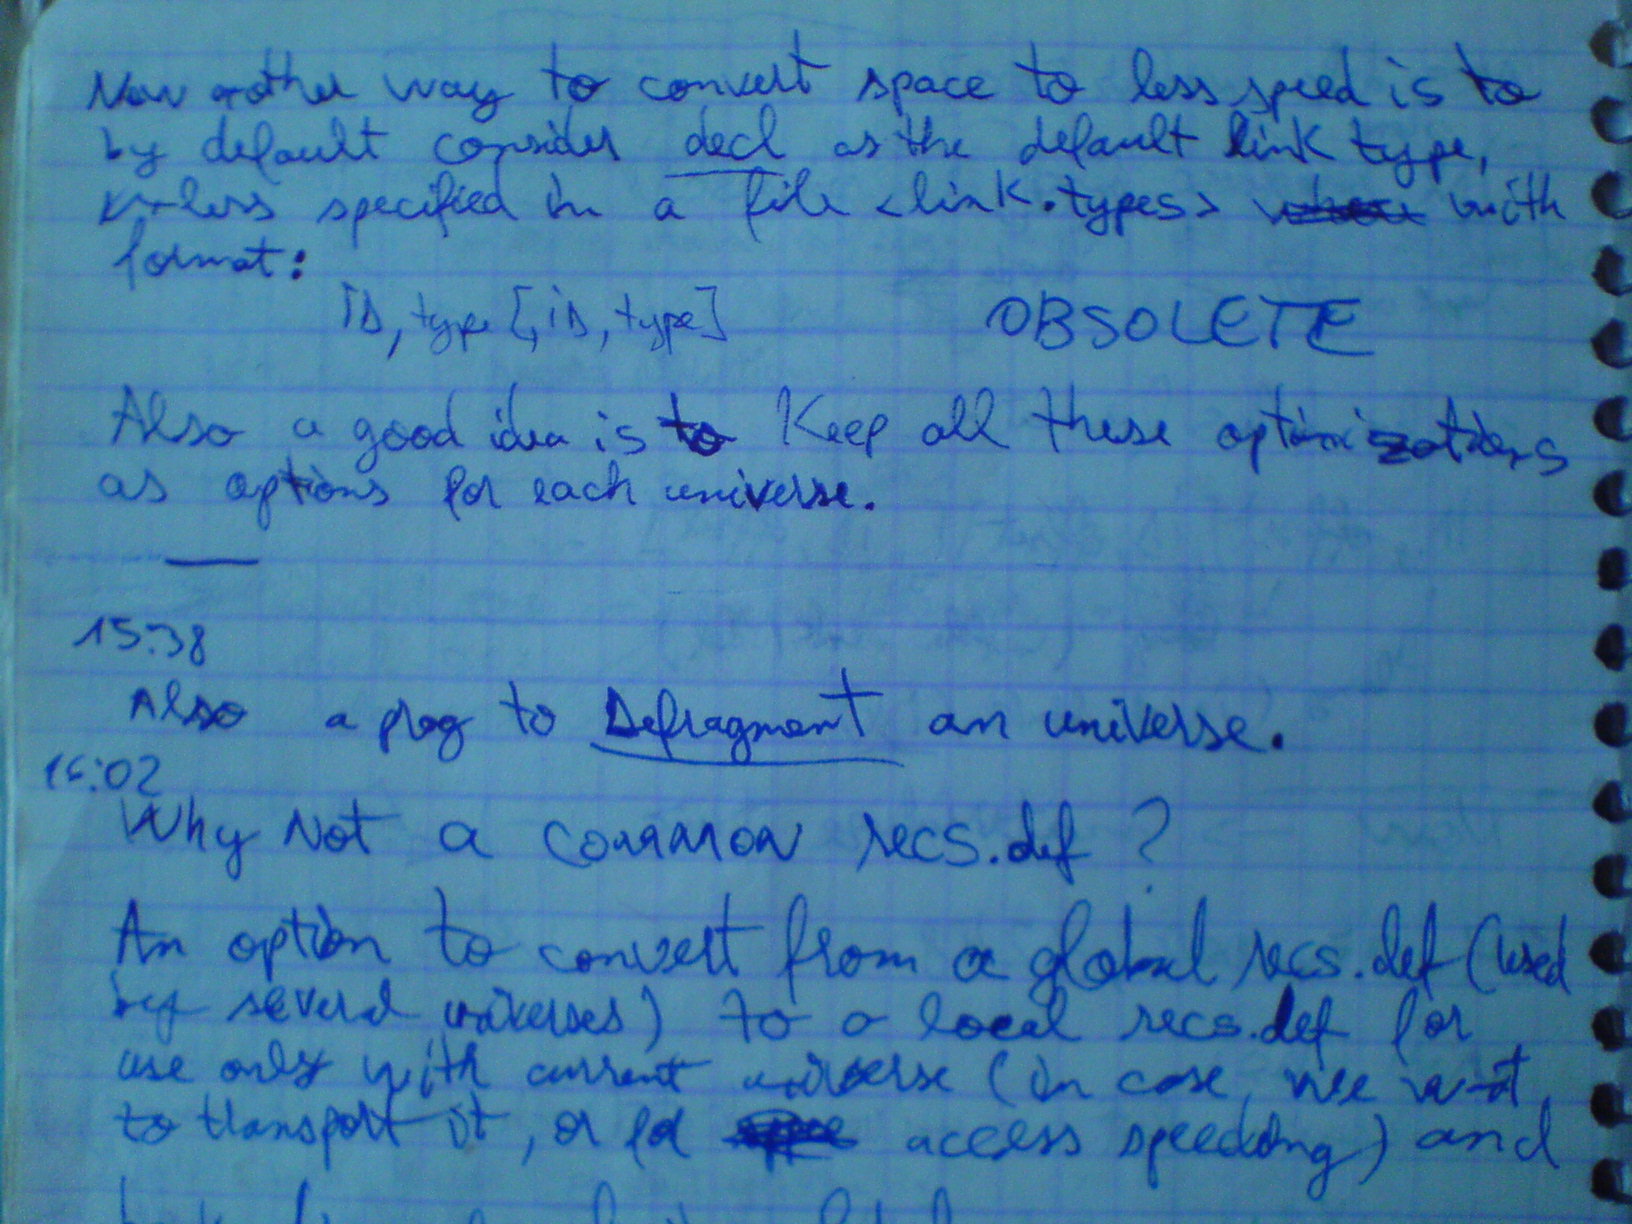 Now another way to convert space to less speed is to
by default consider decl as the default link type,
unless specified in a file <link.types> with
format:
ID, type [, iD, type]
OBSOLETE
Also a good idea is to Keep all these optimizations
as options for each universe.
15:38
Also a prog to Defragment an universe.
16:02
Why Not a common recs.def ?
An option to convert from a global recs.def (used
by several universes) to a local recs.def for
use only with current universe (in case we want
to transport it, or for access speeding) and